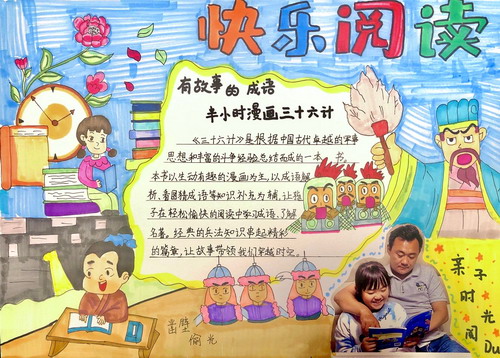 快乐阅读
有故事的成语
半小时漫画三十六计
《三十六计》是根据中国古代卓越的军事
思想和丰富的斗争经验总结而成的一本 书
本书以生动有趣的漫画为主,以成语解
析、看图猜成语等知识补充为辅,让孩
子在轻松愉快的阅读中学习成语,了解
名著。经典的兵法知识串起精彩
的篇章,让故事带领我们穿越时空。
凿壁
偷光
亲子
时光
阅Du